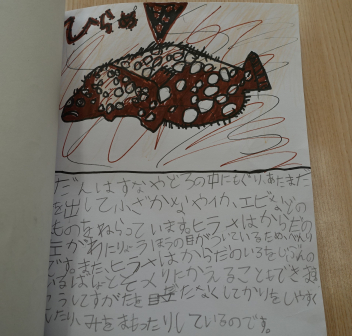 ひらめ
だんはすなやどろの中にもぐり、あたまだ
を出して、小ざかなやイカ、エビなどの
ものをねらっています。ヒラメはからだの
がわにりょうほうの目がついているため
です。また、ヒラメはからだのいろを
にかえることもでき
うしてすがたを目立たなくしてかりをしやすく
たり、みをまもったりしているのです。